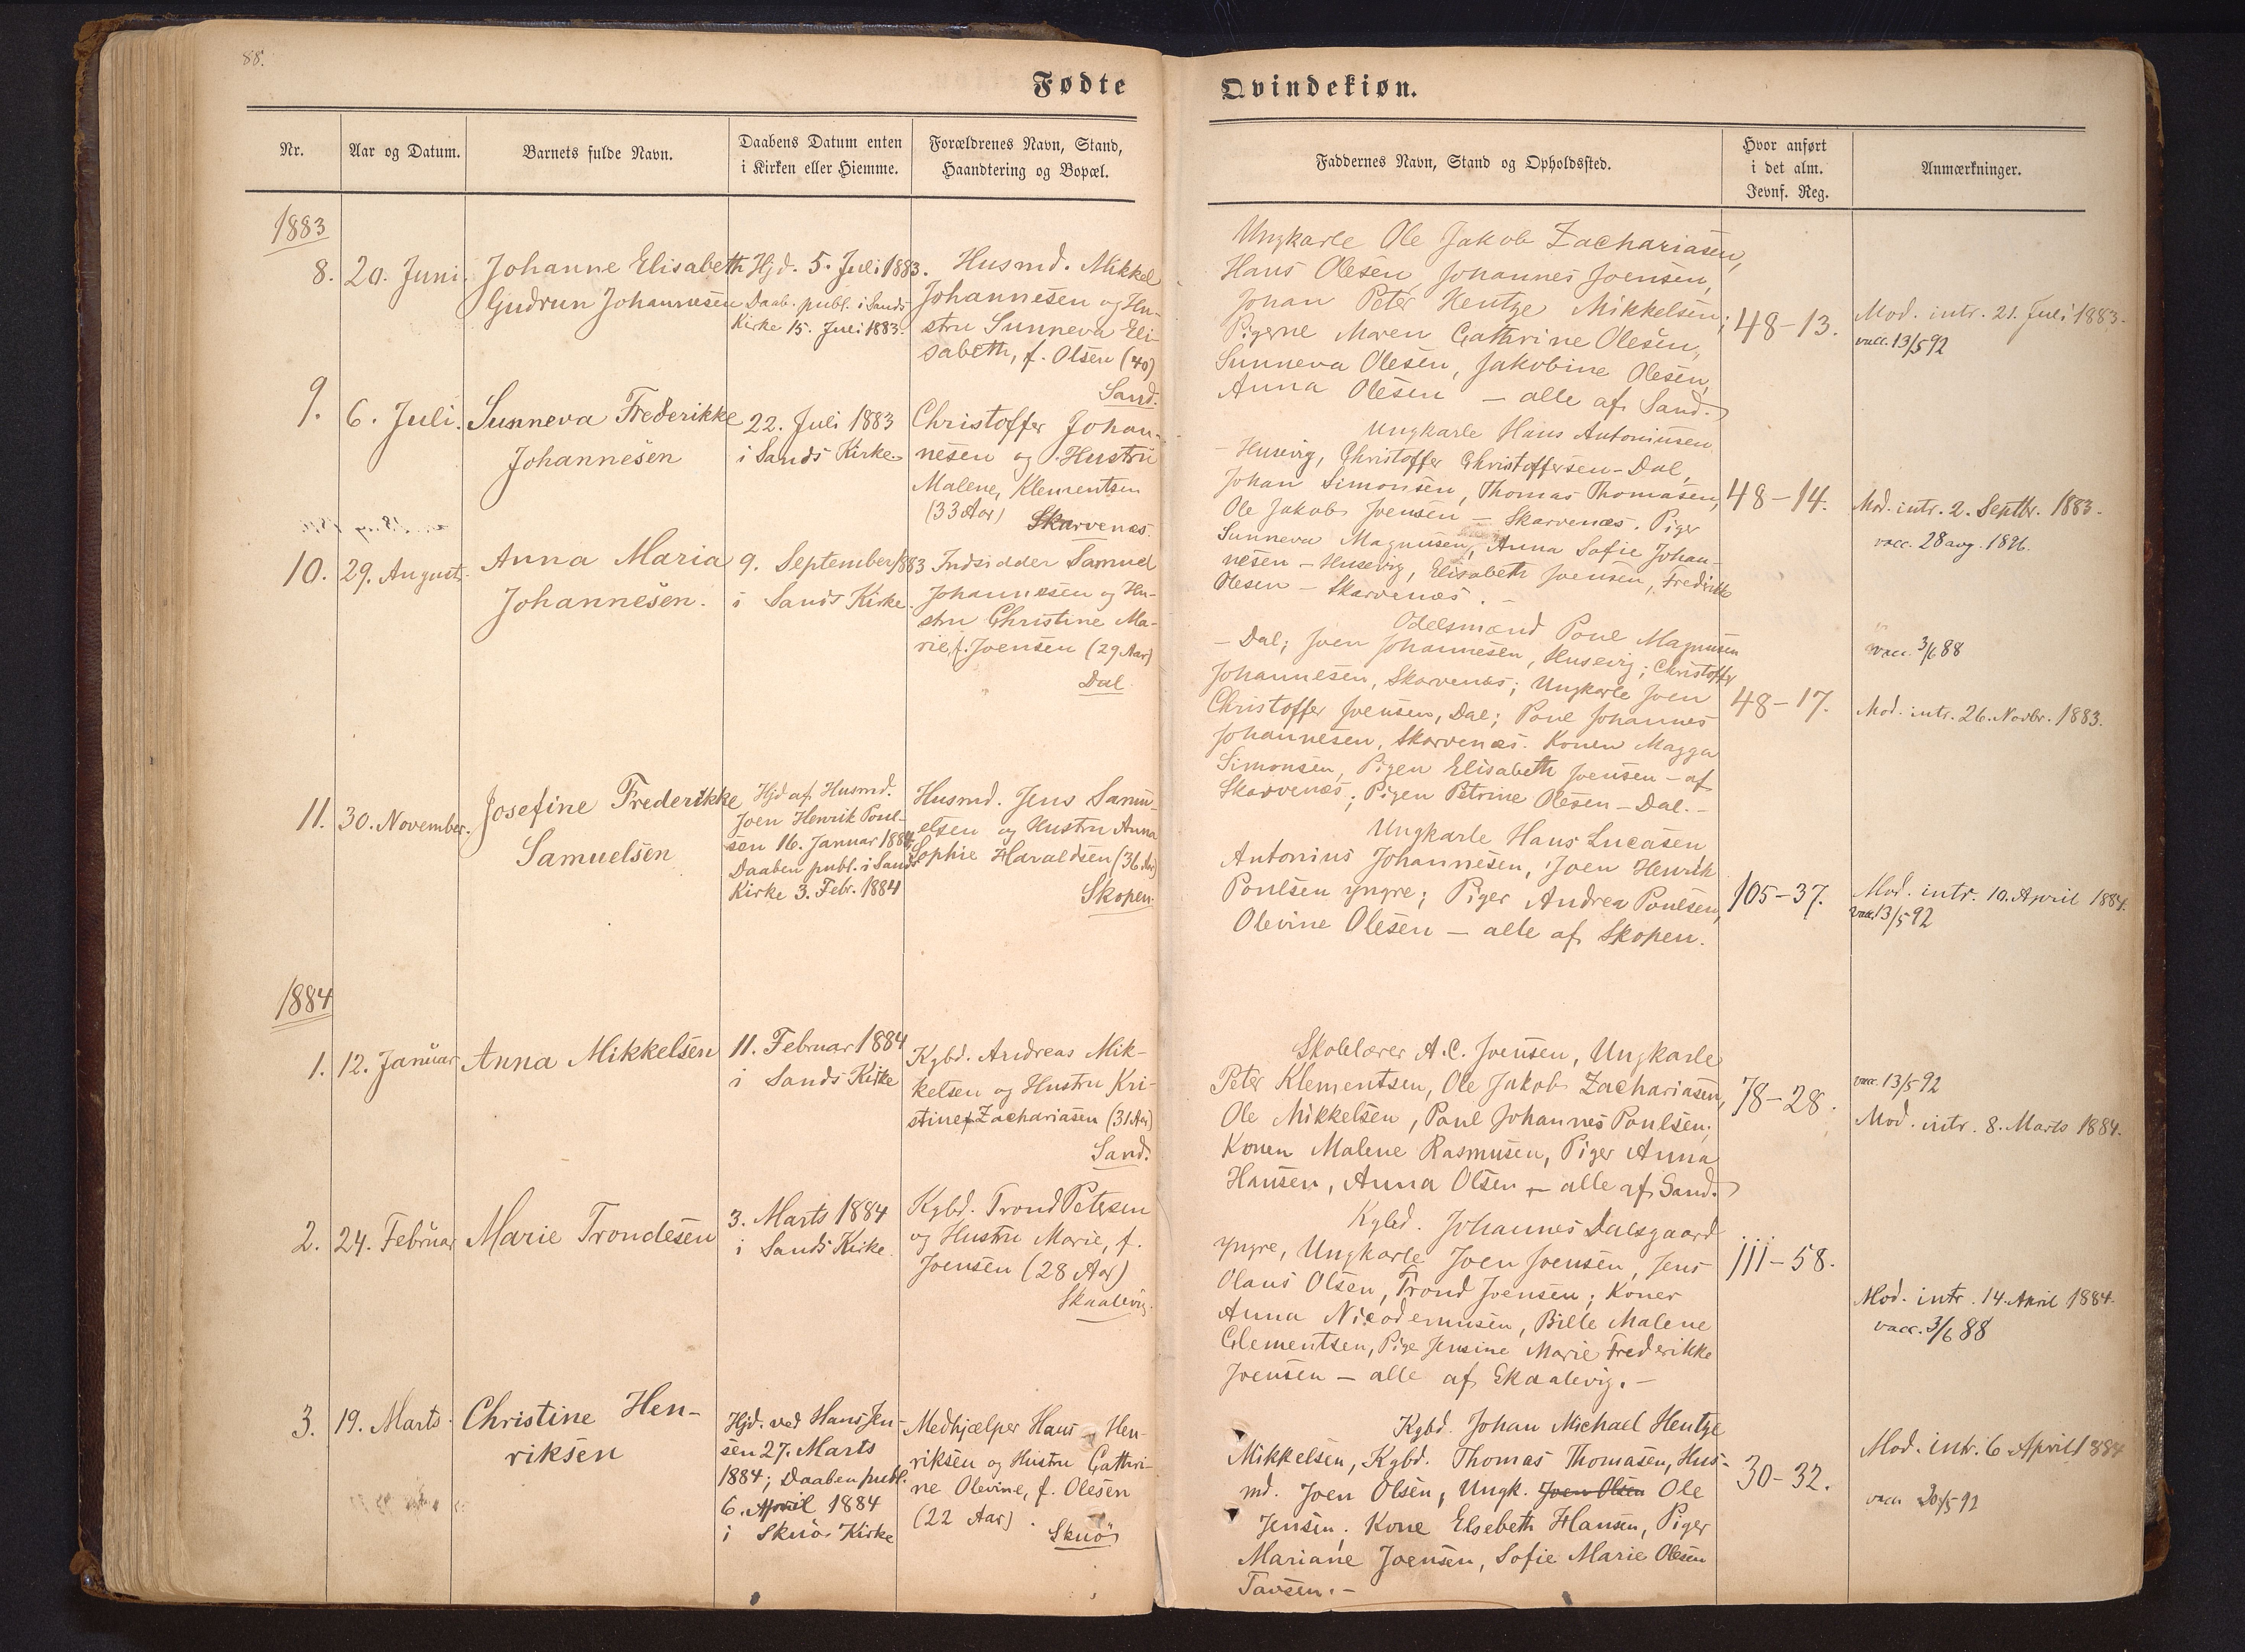 88.
Fødte
Qvindekiøn.
Nr.
Aar og Datum.
Barnets fulde Navn.
Daabens Datum enten
i Kirken eller Hiemme.
Forældrenes Navn, Stand,
Haandtering og Bopæl.
Faddernes Navn, Stand og Opholdssted.
Hvor anført
i det alm.
Jevnf. Reg.
Anmærkninger.
1883
8.
20. Juni.
Johanne Elisabeth
Gudrun Johannesen
Hjd. 5. Juli 1883.
Daab. publ. i Sands
Kirke 15. Juli 1883.
Husmd. Mikkel
Johannesen og Hu-
stru Sunneva Eli-
sabeth, f. Olsen (40)
Sand.
Ungkarle Ole Jakob Zachariasen,
Hans Olesen, Johannes Joensen,
Johan Peter Hentze Mikkelsen;
Pigerne Maren Cathrine Olesen,
Sunneva Olesen, Jakobine Olesen,
Anna Olesen - alle af Sand.
48-13.
Mod. intr. 21. Juli 1883.
vacc. 13/5 92
9.
6. Juli.
Sunneva Frederikke
Johannesen
22. Juli 1883
i Sands Kirke
Christoffer Johan-
nesen og Hustru
Malene, Klementsen
(33 Aar)
Skarvenæs.
Ungkarle Hans Antoniusen
- Husevig, Christoffer Christoffersen - Dal,
Johan Simonsen, Thomas Thomasen,
Ole Jakob Joensen - Skarvenæs. Piger
Sunneva Magnusen, Anna Sofie Johan-
nesen - Husevig, Elisabeth Joensen, Fredrikke
Olesen - Skarvenæs. -
48-14.
Mod. intr. 2. Septbr. 1883.
vacc. 28 aug. 1896.
10.
29. August.
Anna Maria
Johannesen.
9. September 1883
i Sands Kirke.
Indsidder Samuel
Johannesen og Hu-
stru Christine Ma-
rie, f. Joensen (29 Aar)
Dal.
Odelsmænd Poul Magnusen
- Dal; Joen Johannesen, Husevig; Christoffer
Johannesen, Skarvenæs; Ungkarle Joen
Christoffer Joensen, Dal; Poul Johannes
Johannesen, Skarvenæs. Konen Magga
Simonsen, Pigen Elisabeth Joensen - af
Skarvenæs; Pigen Petrine Olesen - Dal. -
48-17.
vacc. 3/6 88
Mod. intr. 26. Novbr. 1883.
11.
30. November.
Josefine Frederikke
Samuelsen
Hjd af Husmd.
Joen Henrik Poul-
sen 16. Januar 1884,
Daaben publ. i Sands
Kirke 3. Febr. 1884
Husmd. Jens Samu-
elsen og Hustru Anna
Sophie Haraldsen (36 Aar)
Skopen.
Ungkarle Hans Lucasen
Antonius Johannesen, Joen Henrik
Poulsen yngre; Piger Andrea Poulsen,
Olevine Olesen - alle af Skopen.
105-37.
Mod. intr. 10. April 1884.
vacc. 13/5 92
1884
1.
12. Januar
Anna Mikkelsen
11. Februar 1884
i Sands Kirke
Kgbd. Andreas Mik-
kelsen og Hustru Kri-
stine, f. Zachariasen (31 Aar)
Sand.
Skolelærer A. C. Joensen, Ungkarle
Peter Klementsen, Ole Jakob Zachariasen,
Ole Mikkelsen, Poul Johannes Poulsen.
Konen Malene Rasmusen, Piger Anna
Hansen, Anna Olsen - alle af Sand.
78-28.
vacc. 13/5 92
Mod. intr. 8. Marts 1884.
2.
24. Februar
Marie Trondesen
3. Marts 1884
i Sands Kirke.
Kgbd. Trond Petersen
og Hustru Marie, f.
Joensen (28 Aar)
Skaalevig.
Kgbd. Johannes Dalsgaard
yngre, Ungkarle Joen Joensen, Jens
Olaus Olsen, Trond Joensen; Koner
Anna Nicodemusen, Bille Malene
Clementsen, Pige Jensine Marie Frederikke
Joensen - alle af Skaalevig. -
111-58.
Mod. intr. 14. April 1884.
vacc. 3/6 88
3.
19. Marts.
Christine Hen-
riksen
Hjd. ved Hans Jen-
sen 27. Marts
1884; Daaben publ.
6. April 1884
i Skuø Kirke
Medhjælper Hans Hen-
riksen og Hustru Cathri-
ne Olevine, f. Olesen
(22 Aar).
Skuø
Kgbd. Johan Michael Hentze
Mikkelsen, Kgbd. Thomas Thomasen, Hus-
md. Joen Olsen, Ungk. Joen Olsen Ole
Jensen. Kone Elsebeth Hansen, Piger
Mariane Joensen, Sofie Marie Olesen
Tausen. -
30-32.
Mod. intr. 6 April 1884
vacc 20/5 92